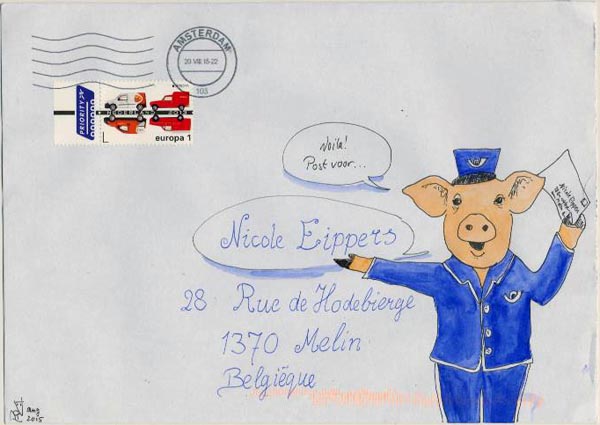 AMSTERDAM
20 VIII 15-22
103
PRIORITY
NEDERLAND 2013
europa 1
Voilà!
Post voor...
Nicole Eippers
28 Rue de Hodebierge
1370 Melin
Belgiëque
Nicole Eippers
aug
2015